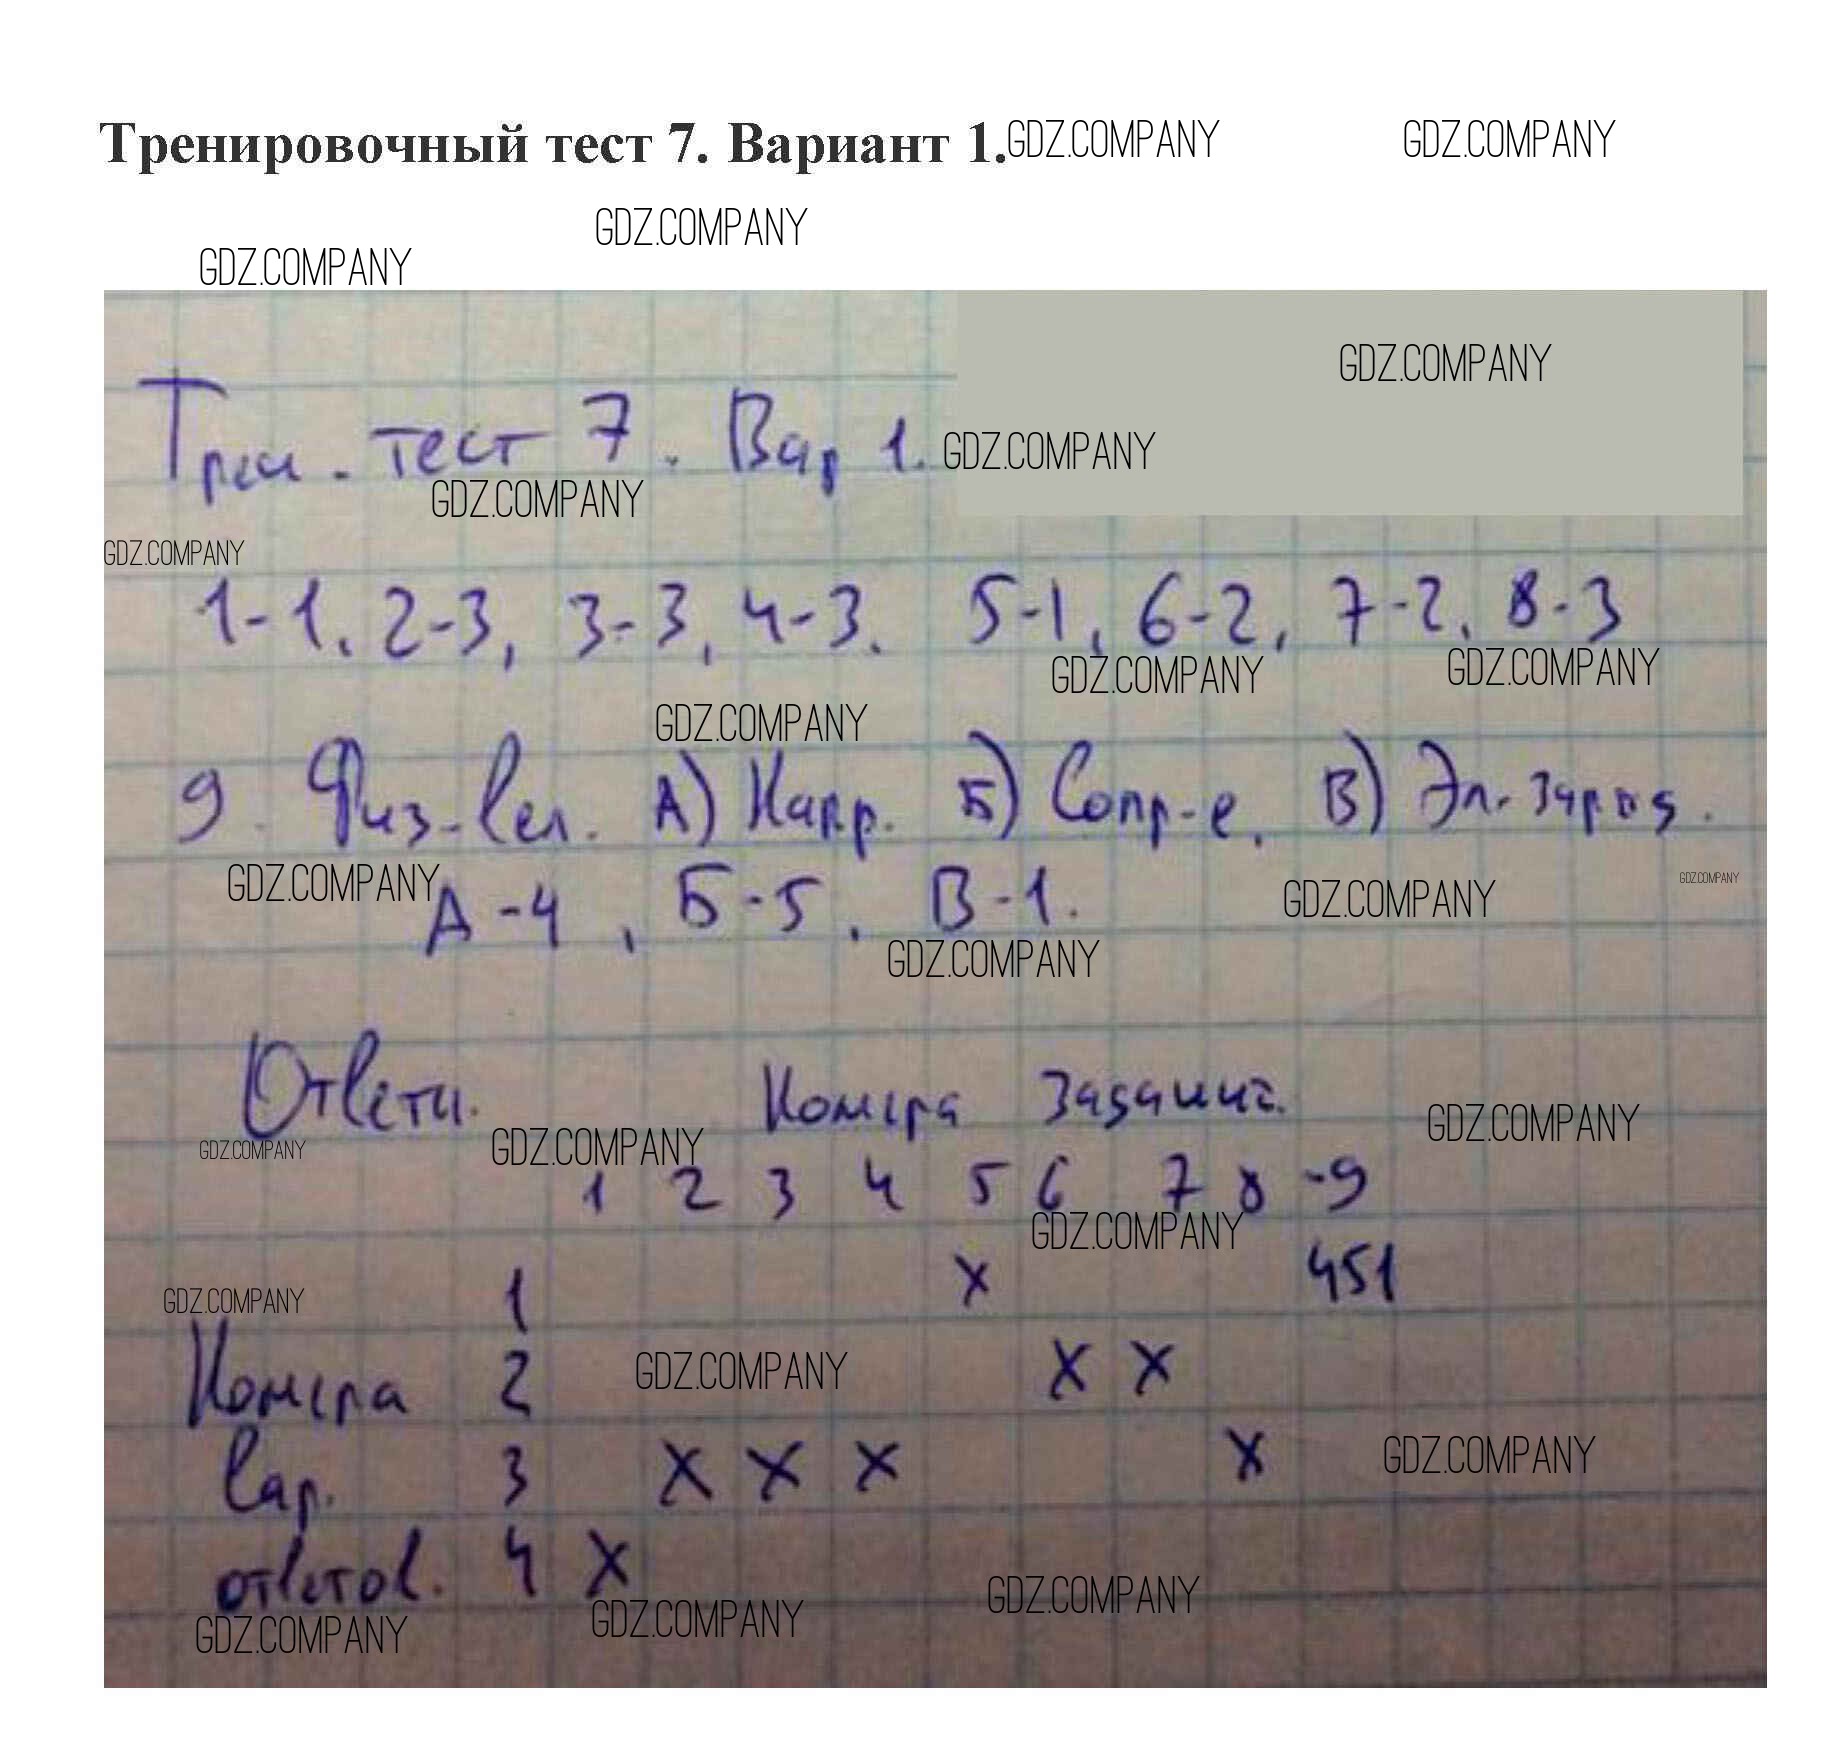 Тренировочный тест 7. Вариант 1. GDZ.COMPANY GDZ.COMPANY
GDZ.COMPANY
GDZ.COMPANY
GDZ.COMPANY
Трен. тест 7. Вар 1. GDZ.COMPANY
GDZ.COMPANY
GDZ.COMPANY
1-1, 2-3, 3-3, 4-3. 5-1, 6-2, 7-2, 8-3
GDZ.COMPANY GDZ.COMPANY
GDZ.COMPANY
9. Физ-вел. А) Напр. Б) Сопр-е. В) Эл. заряд.
GDZ.COMPANY GDZ.COMPANY GDZ.COMPANY
А-4, Б-5, В-1.
GDZ.COMPANY
Ответы. Номера заданий.
GDZ.COMPANY GDZ.COMPANY GDZ.COMPANY
1 2 3 4 5 6 7 8 -9
GDZ.COMPANY
1 х 451
GDZ.COMPANY
Номера 2 х х
GDZ.COMPANY
вар. 3 х х х х
GDZ.COMPANY
ответов. 4 х
GDZ.COMPANY GDZ.COMPANY GDZ.COMPANY